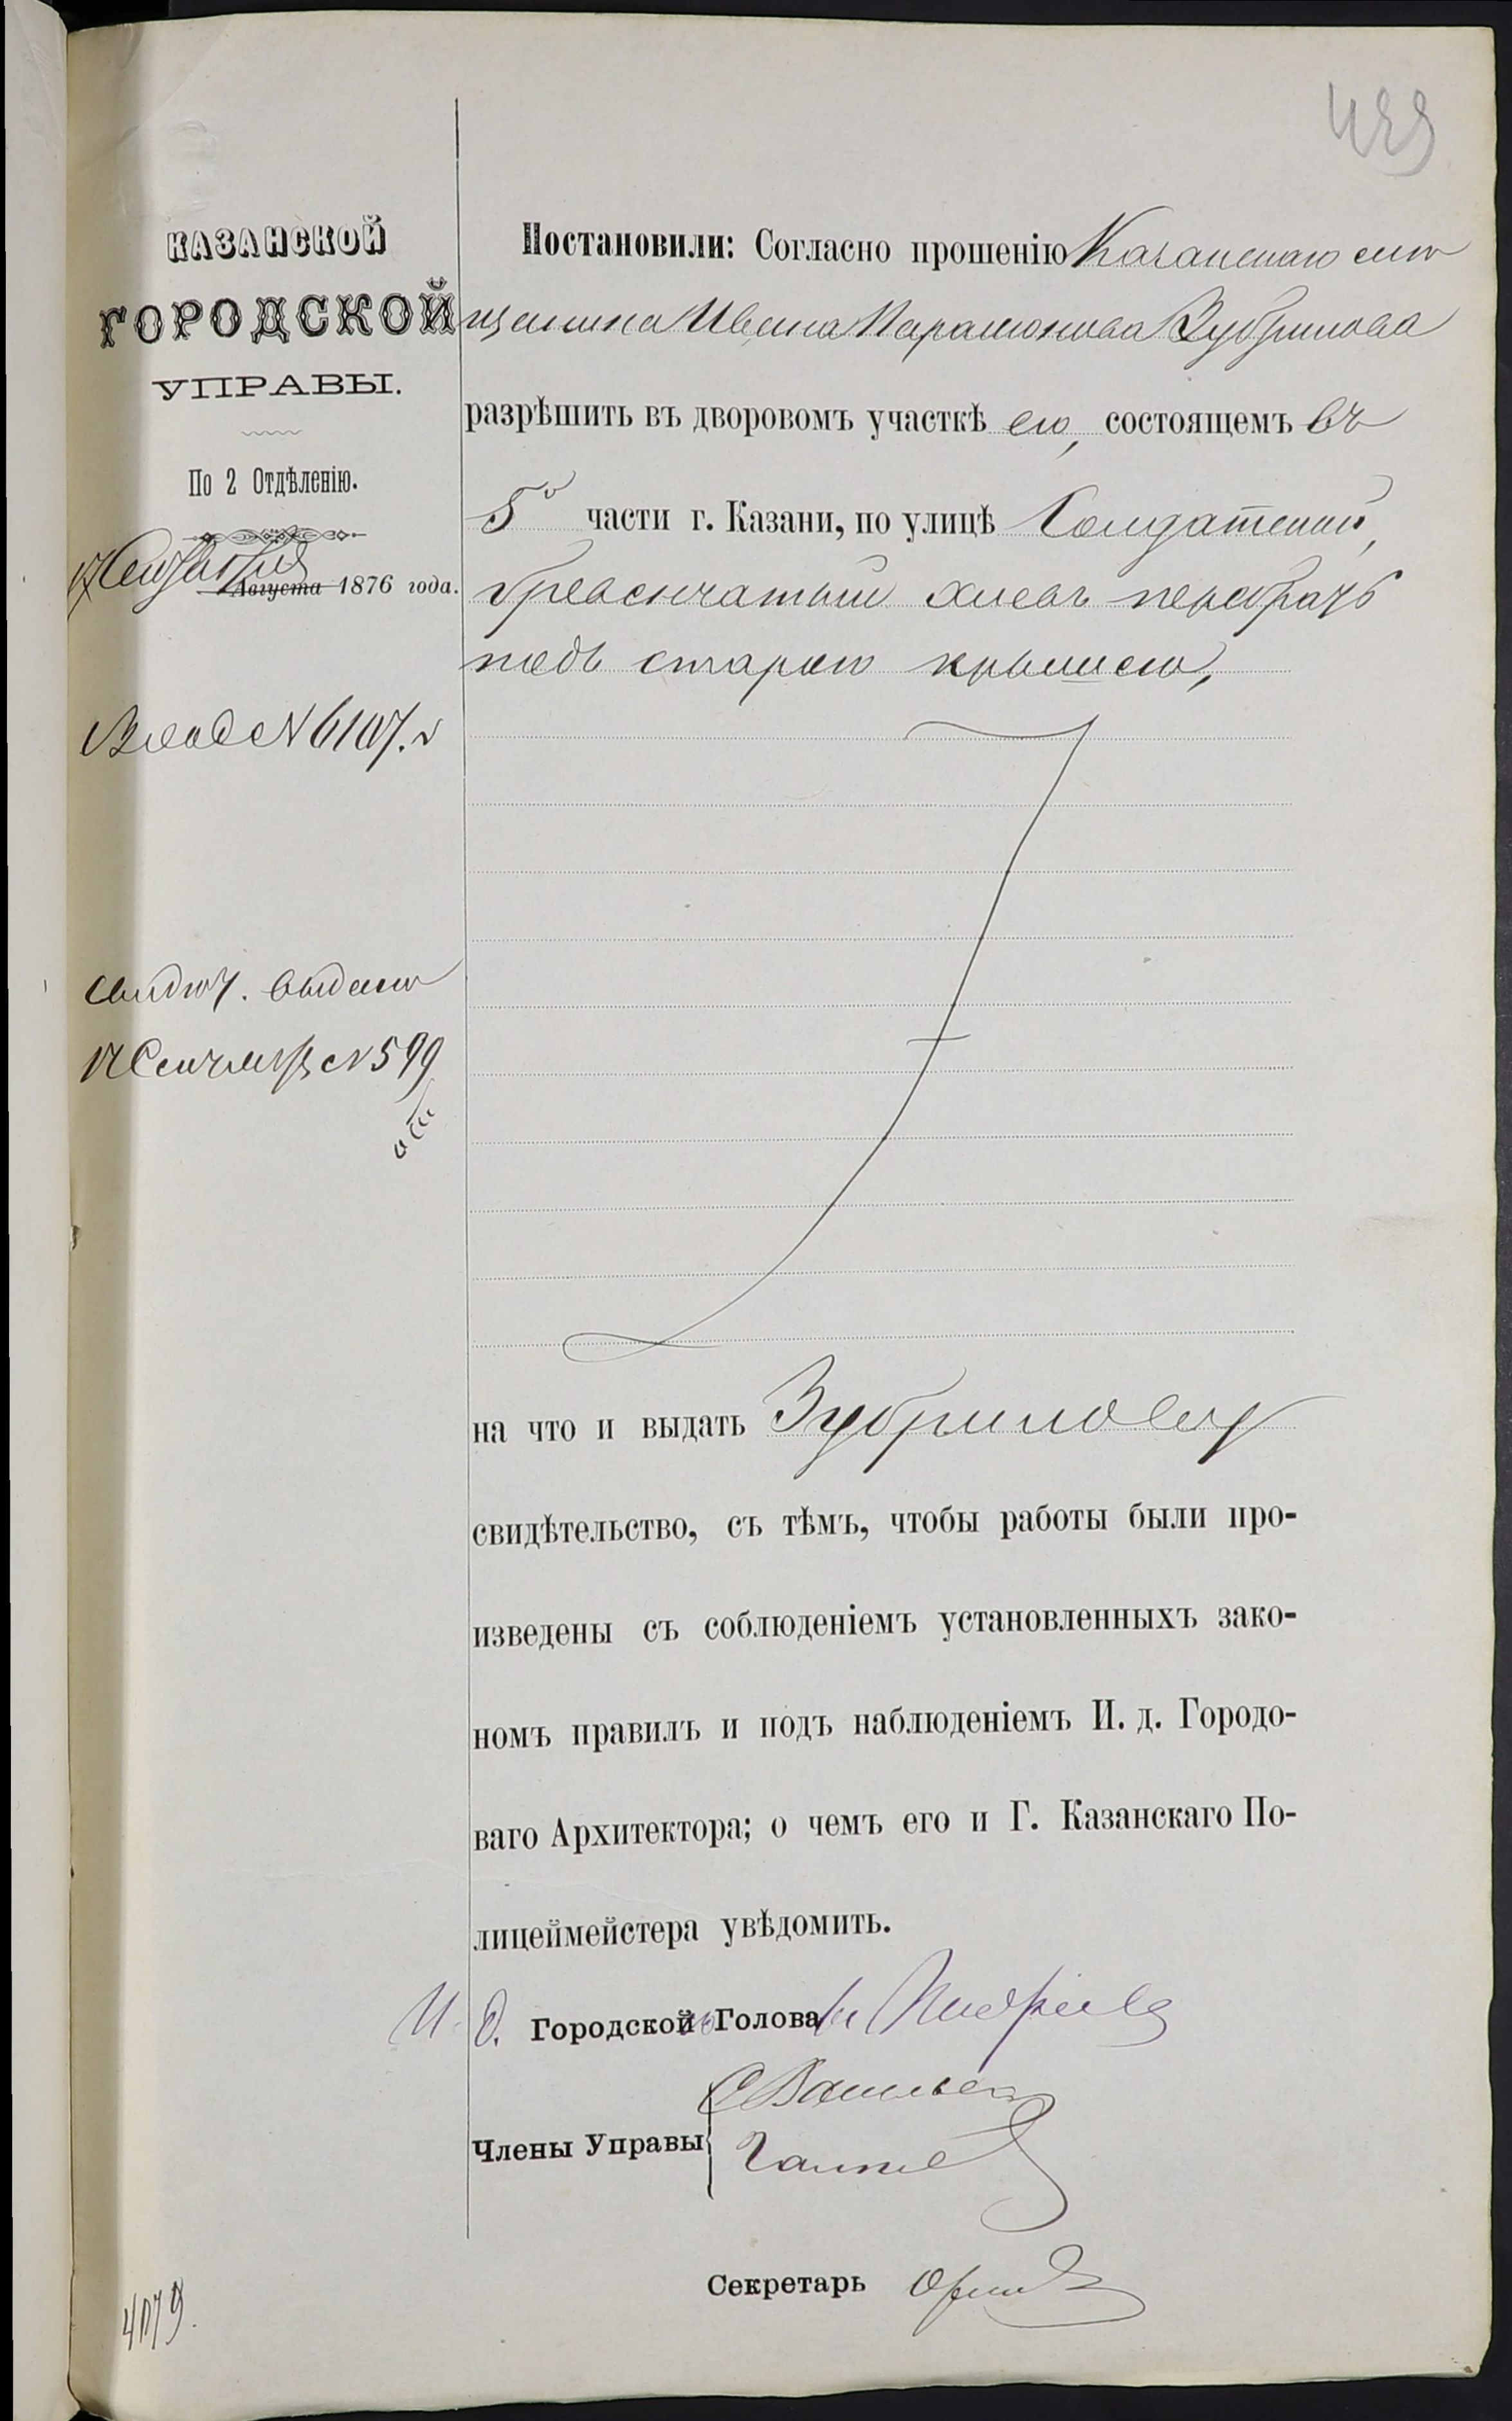 КАЗАНСКОЙ
ГОРОДСКОЙ
УПРАВЫ.
По 2 Отдѣленію.
17 Сентября
Августа 1876 года.
Вход № 6107.
Свидѣт. выдано
17 Сентябр № 599
4079.
Постановили: Согласно прошенію Казанскаго мѣ
щанина Ивана Парамонова Зубринова
разрѣшить въ дворовомъ участкѣ его, состоящемъ въ
5й части г. Казани, по улицѣ Солдатской,
бревенчатый хлевъ перебрать
подъ старою крышею,
на что и выдать Зубринову
свидѣтельство, съ тѣмъ, чтобы работы были про-
изведены съ соблюденіемъ установленныхъ зако-
номъ правилъ и подъ наблюденіемъ И. д. Городо-
ваго Архитектора; о чемъ его и Г. Казанскаго По-
лицеймейстера увѣдомить.
И. д. Городской Голова
Члены Управы
С Васильев
Секретарь